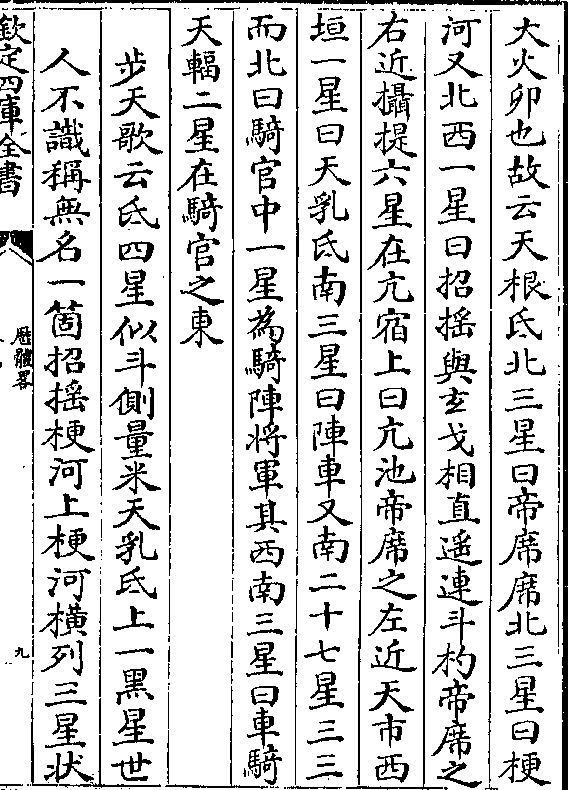 大火卯也故云天根氐北三星曰帝席席北三星曰梗
河又北西一星曰招摇與玄戈相直遥連斗杓帝席之
右近攝提六星在亢宿上曰亢池帝席之左近天市西
垣一星曰天乳氐南三星曰陣車又南二十七星三三
而北曰騎官中一星為騎陣将軍其西南三星曰車騎
天輻二星在騎官之東
步天歌云氐四星似斗側量米天乳氐上一黑星世
人不識稱無名一箇招摇梗河上梗河橫列三星狀
欽定四庫全書
厯體畧
九